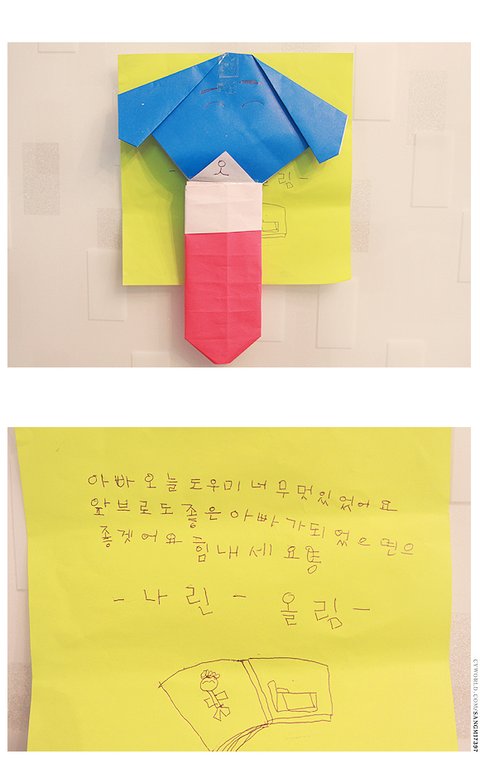 림 -
아바 오늘 도우미 너무멋있었어요
앞브로도 좋은 아빠가되었으면으
좋겟어요 힘내세요용
- 나린 - 올림 -